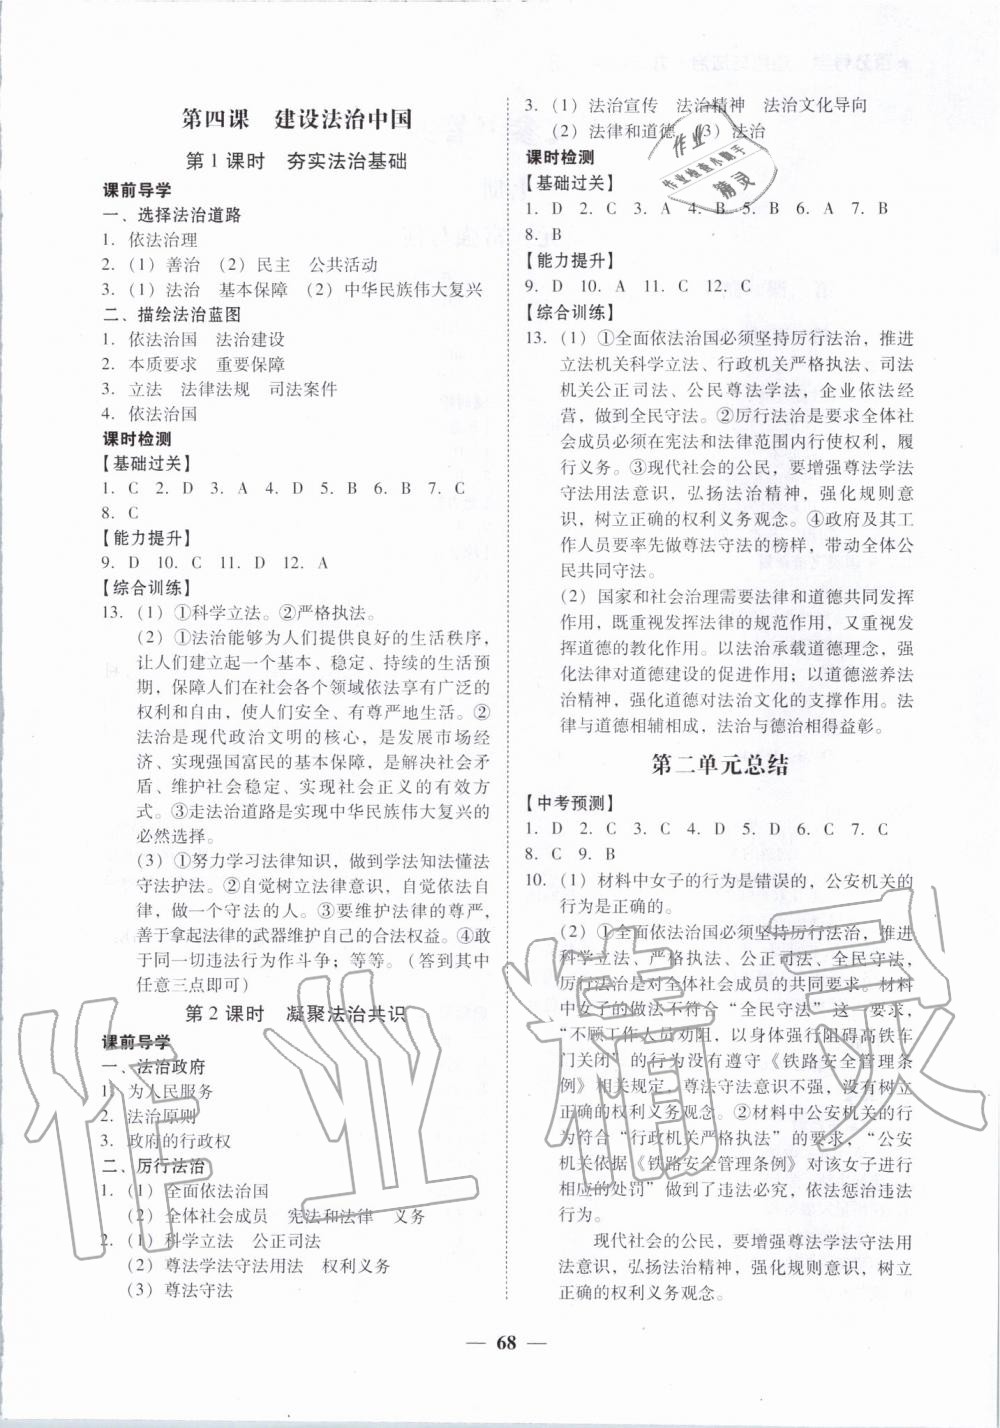 第四课　建设法治中国
第 1 课时　夯实法治基础
课前导学
一、选择法治道路
1. 依法治理
2. （1）善治　（2）民主　公共活动
3. （1）法治　基本保障　（2）中华民族伟大复兴
二、描绘法治蓝图
1. 依法治国　法治建设
2. 本质要求　重要保障
3. 立法　法律法规　司法案件
4. 依法治国
课时检测
【基础过关】
1. C　2. D　3. A　4. D　5. B　6. B　7. C
8. C
【能力提升】
9. D　10. C　11. D　12. A
【综合训练】
13. （1）①科学立法。②严格执法。
（2）①法治能够为人们提供良好的生活秩序，
让人们建立起一个基本、稳定、持续的生活预
期，保障人们在社会各个领域依法享有广泛的
权利和自由，使人们安全、有尊严地生活。②
法治是现代政治文明的核心，是发展市场经
济、实现强国富民的基本保障，是解决社会矛
盾、维护社会稳定、实现社会正义的有效方
式。③走法治道路是实现中华民族伟大复兴的
必然选择。
（3）①努力学习法律知识，做到学法知法懂法
守法护法。②自觉树立法律意识，自觉依法自
律，做一个守法的人。③要维护法律的尊严，
善于拿起法律的武器维护自己的合法权益。④敢
于同一切违法行为作斗争；等等。（答到其中
任意三点即可）
第 2 课时　凝聚法治共识
课前导学
一、法治政府
1. 为人民服务
2. 法治原则
3. 政府的行政权
二、厉行法治
1. （1）全面依法治国
（2）全体社会成员　宪法和法律　义务
2. （1）科学立法　公正司法
（2）尊法学法守法用法　权利义务
（3）尊法守法
3. （1）法治宣传　法治精神　法治文化导向
（2）法律和道德　（3）法治
课时检测
【基础过关】
1. D　2. C　3. A　4. B　5. B　6. A　7. B
8. B
【能力提升】
9. D　10. A　11. C　12. C
【综合训练】
13. （1）①全面依法治国必须坚持厉行法治，推进
立法机关科学立法、行政机关严格执法、司法
机关公正司法、公民尊法学法，企业依法经
营，做到全民守法。②厉行法治是要求全体社
会成员必须在宪法和法律范围内行使权利，履
行义务。③现代社会的公民，要增强尊法学法
守法用法意识，弘扬法治精神，强化规则意
识，树立正确的权利义务观念。④政府及其工
作人员要率先做尊法守法的榜样，带动全体公
民共同守法。
（2）国家和社会治理需要法律和道德共同发挥
作用，既重视发挥法律的规范作用，又重视发
挥道德的教化作用。以法治承载道德理念，强
化法律对道德建设的促进作用；以道德滋养法
治精神，强化道德对法治文化的支撑作用。法
律与道德相辅相成，法治与德治相得益彰。
第二单元总结
【中考预测】
1. D　2. C　3. C　4. D　5. D　6. C　7. C
8. C　9. B
10. （1）材料中女子的行为是错误的，公安机关的
行为是正确的。
（2）①全面依法治国必须坚持厉行法治，推进
科学立法、严格执法、公正司法、全民守法，
厉行法治是对全体社会成员的共同要求。材料
中女子的做法不符合“全民守法”这一要求，
“不顾工作人员劝阻，以身体强行阻碍高铁车
门关闭”的行为没有遵守《铁路安全管理条
例》相关规定，尊法守法意识不强，没有树立
正确的权利义务观念。②材料中公安机关的行
为符合“行政机关严格执法”的要求，“公安
机关依据《铁路安全管理条例》对该女子进行
相应的处罚”做到了违法必究，依法惩治违法
行为。
现代社会的公民，要增强尊法学法守法用
法意识，弘扬法治精神，强化规则意识，树立
正确的权利义务观念。
— 68 —
作业
作业检查小助手
精灵
作业精灵